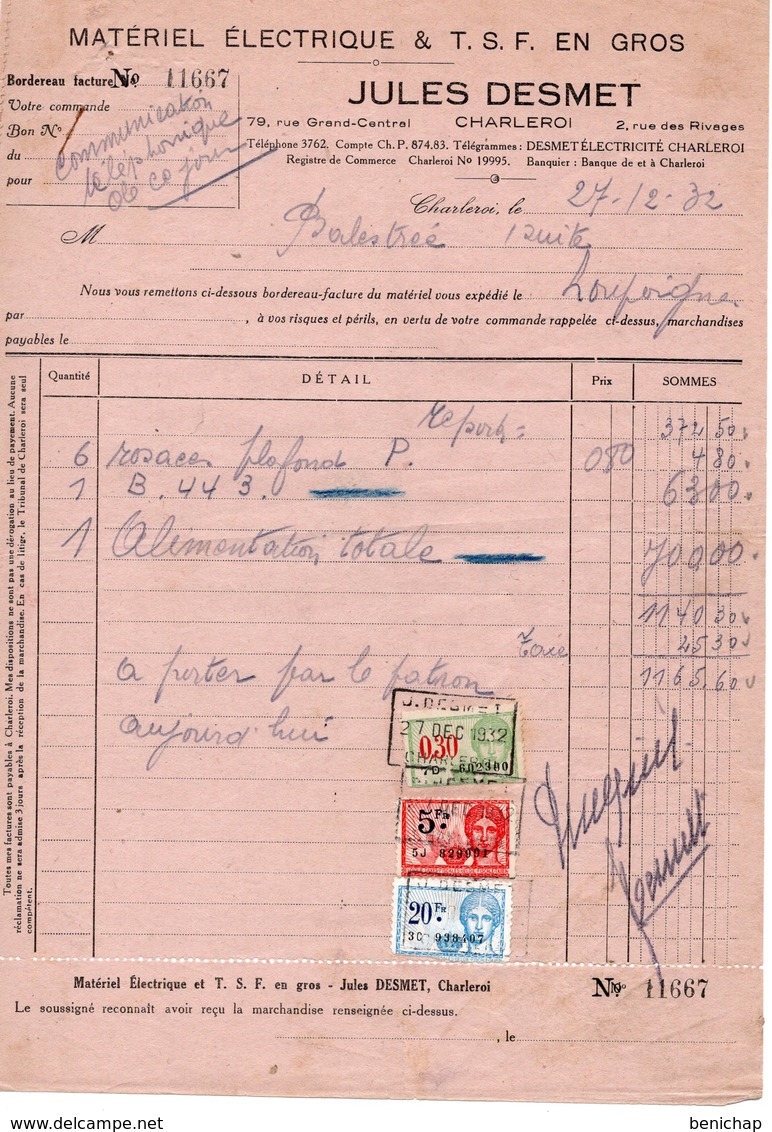 MATÉRIEL ÉLECTRIQUE & T. S. F. EN GROS
Bordereau facture No 11667
Votre commande
Bon No
du
pour
communication
téléphonique
de ce jour
JULES DESMET
79, rue Grand-Central CHARLEROI 2, rue des Rivages
Téléphone 3762. Compte Ch. P. 874.83. Télégrammes : DESMET ÉLECTRICITÉ CHARLEROI
Registre de Commerce Charleroi No 19995. Banquier : Banque de et à Charleroi
Charleroi, le 27-12-32
M Balestrée suite
Nous vous remettons ci-dessous bordereau-facture du matériel vous expédié le
par , à vos risques et périls, en vertu de votre commande rappelée ci-dessus, marchandises
payables le
Quantité DÉTAIL Prix SOMMES
report = 372 50
6 rosaces plafond P. 0 80 4 80
1 B. 443. 63 00
1 Alimentation totale 700 00
1140 30
Taxe 25 30
1165.60
a porter par le patron
aujourd'hui
J. DESMET
27 DEC 1932
CHARLEROI
0.30
7D 602300
5 FR
5J 829901
J. DESMET
20 FR
3C 938407
Toutes mes factures sont payables à Charleroi. Mes dispositions ne sont pas une dérogation au lieu de payement. Aucune
réclamation ne sera admise 3 jours après la réception de la marchandise. En cas de litige, le Tribunal de Charleroi sera seul
compétent.
Matériel Électrique et T. S. F. en gros - Jules DESMET, Charleroi No 11667
Le soussigné reconnaît avoir reçu la marchandise renseignée ci-dessus.
, le
www.delcampe.net
benichap